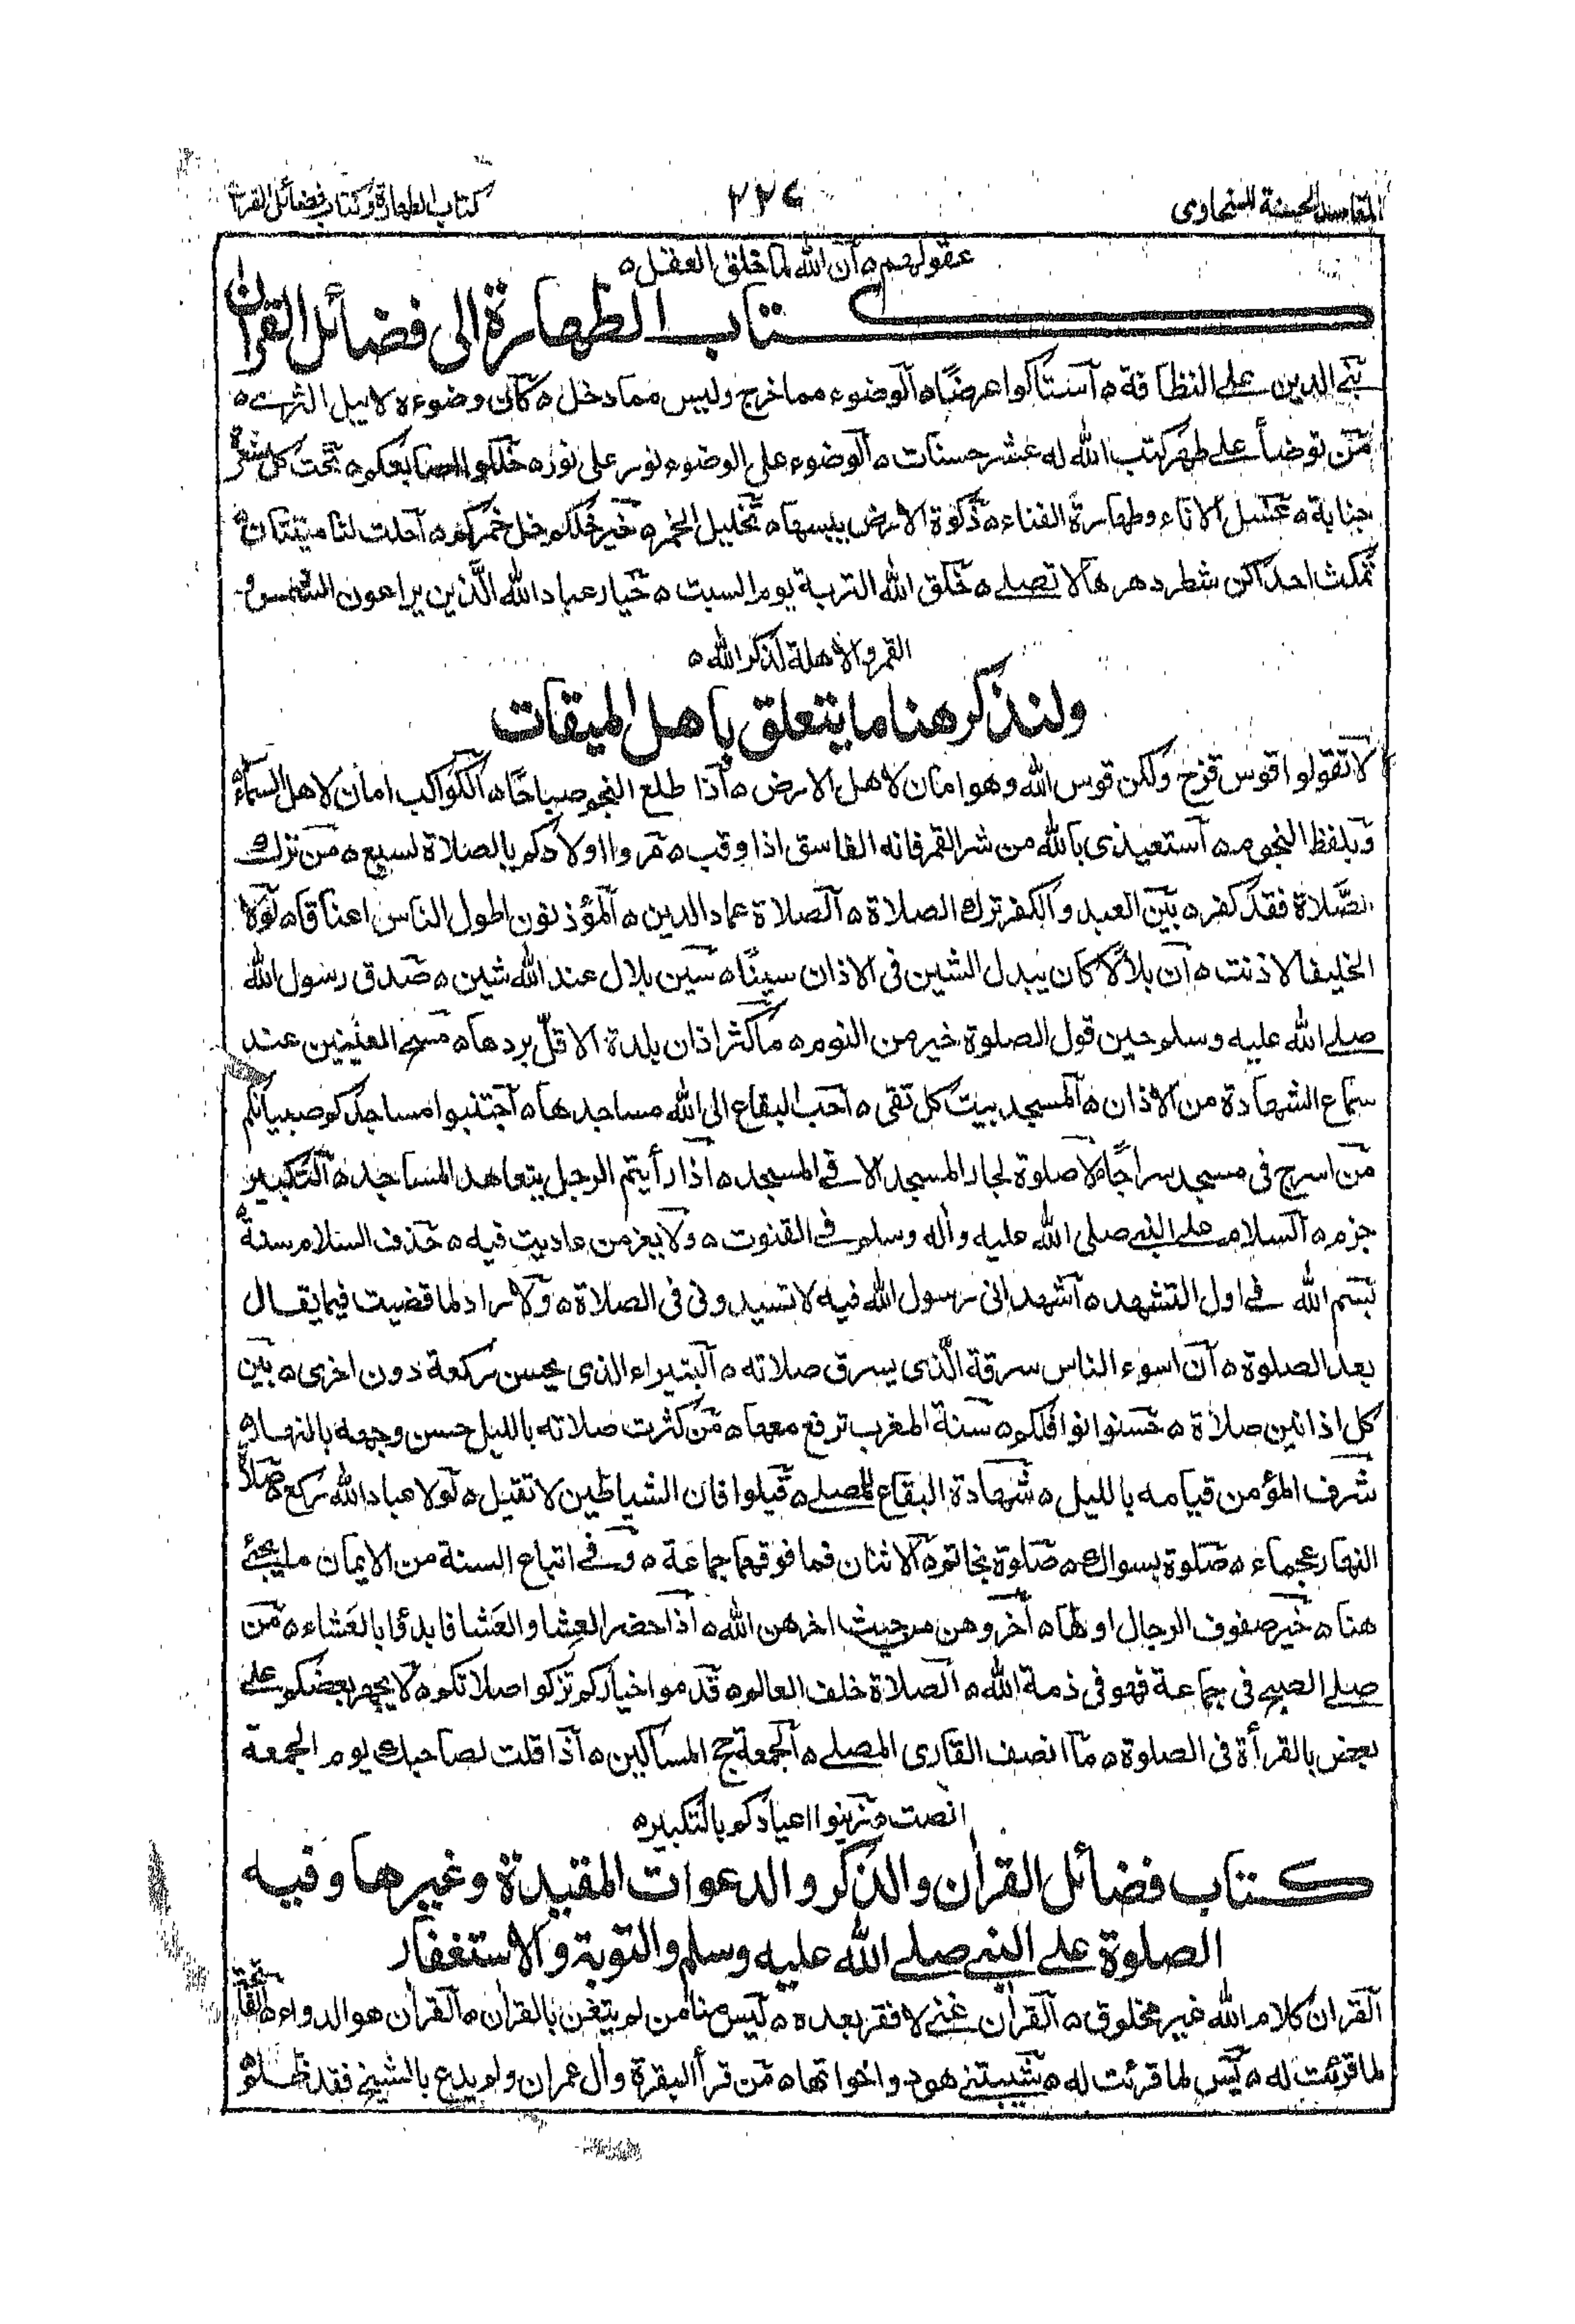 المقاصد الحسنة للسخاوی
۲۲۶
كتاب الطهارة وكتاب فضائل القرآن
عقولهم ٥ آن الله لما خلق العقل ٥
كتاب الطهارة الى فضائل القرآن
بنی الدین علی النظافة ٥ آستاكوا عرضًا ٥ آلوضوء مما خرج ولیس مما دخل ٥ كآن وضوءه لا یبل الثری ٥
من توضأ علی طهر كتب الله له عشر حسنات ٥ آلوضوء علی الوضوء نور علی نور ٥ خللوا اصابعكم ٥ تحت كل شعرة
جنابة ٥ غسل الاناء وطهارة الفناء ٥ ذكوة الارض یبسها ٥ تخلیل الخمر ٥ خیر خلكم خل خمركم ٥ آحلت لنا میتتان ٥
تمكث احداكن شطر دهرها لا تصلی ٥ خلق الله التربة یوم السبت ٥ خیار عباد الله الذین یراعون الشمس و
القمر والاهلة لذكر الله ٥
ولنذكر هنا ما یتعلق باهل المیقات
لا تقولوا قوس قزح ولكن قوس الله وهو امان لاهل الارض ٥ آذا طلع النجم صباحًا ٥ آلكواكب امان لاهل السماء
وبلفظ النجوم ٥ آستعیذی بالله من شر القمر فانه الغاسق اذا وقب ٥ مروا اولادكم بالصلاة لسبع ٥ من ترك
الصلاة فقد كفر ٥ بین العبد والكفر ترك الصلاة ٥ آلصلاة عماد الدین ٥ آلمؤذنون اطول الناس اعناقا ٥ لولا
الخلیفا لاذنت ٥ آن بلالًا كان یبدل الشین فی الاذان سینًا ٥ سین بلال عند الله شین ٥ صدق رسول الله
صلی الله علیه وسلم حین قول الصلوة خیر من النوم ٥ ما كثر اذان بلدة الا قل بردها ٥ مسح العینین عند
سماع الشهادة من الاذان ٥ آلمسجد بیت كل تقی ٥ آحب البقاع الی الله مساجدها ٥ آجتنبوا مساجدكم صبیانكم
من اسرج فی مسجد سراجًا ٥ لا صلوة لجار المسجد الا فی المسجد ٥ آذا رأیتم الرجل یتعاهد المساجد ٥ آلتكبیر
جزم ٥ آلسلام علی النبی صلی الله علیه وأله وسلم فی القنوت ٥ ولا یعز من عادیت فیه ٥ حذف السلام سنة
بسم الله فی اول التشهد ٥ آشهد انی رسول الله فیه لا تسیدونی فی الصلاة ٥ ولا راد لما قضیت فیما یقال
بعد الصلوة ٥ آن اسوء الناس سرقة الذی یسرق صلاته ٥ آلبتیراء الذی یحسن ركعة دون اخری ٥ بین
كل اذانین صلاة ٥ حسنوا نوافلكم ٥ سنة المغرب ترفع معها ٥ من كثرت صلاته باللیل حسن وجهه بالنهار ٥
شرف المؤمن قیامه باللیل ٥ شهادة البقاع للمصلی ٥ قیلوا فان الشیاطین لا تقیل ٥ لولا عباد الله ركع ٥ صلاة
النهار عجماء ٥ صلوة بسواك ٥ صلوة بخاتم ٥ آلاثنان فما فوقهما جماعة ٥ وفی اتباع السنة من الایمان ما یجئ
هنا ٥ خیر صفوف الرجال اولها ٥ آخروهن من حیث اخرهن الله ٥ آذا حضر العِشا والعَشا فابدؤا بالعَشاء ٥ من
صلی الصبح فی جماعة فهو فی ذمة الله ٥ آلصلاة خلف العالم ٥ قدموا خیاركم تزكوا صلاتكم ٥ لا یجهر بعضكم علی
بعض بالقرأة فی الصلوة ٥ ما انصف القاری المصلی ٥ آلجمعة حج المساكین ٥ آذا قلت لصاحبك یوم الجمعة
انصت ٥ زینوا اعیادكم بالتكبیر ٥
كتاب فضائل القرآن والذكر والدعوات المقیدة وغیرها وفیه
الصلوة علی النبی صلی الله علیه وسلم والتوبة والاستغفار
آلقرآن كلام الله غیر مخلوق ٥ آلقرآن غنی لا فقر بعده ٥ لیس منا من لم یتغن بالقرآن ٥ آلقرآن هو الدواء ٥
لما قرئت له ٥ یٰس لما قرئت له ٥ شیبتنی هود واخواتها ٥ من قرأ البقرة وأل عمران ولم یدع بالشیخ فقد ظلم